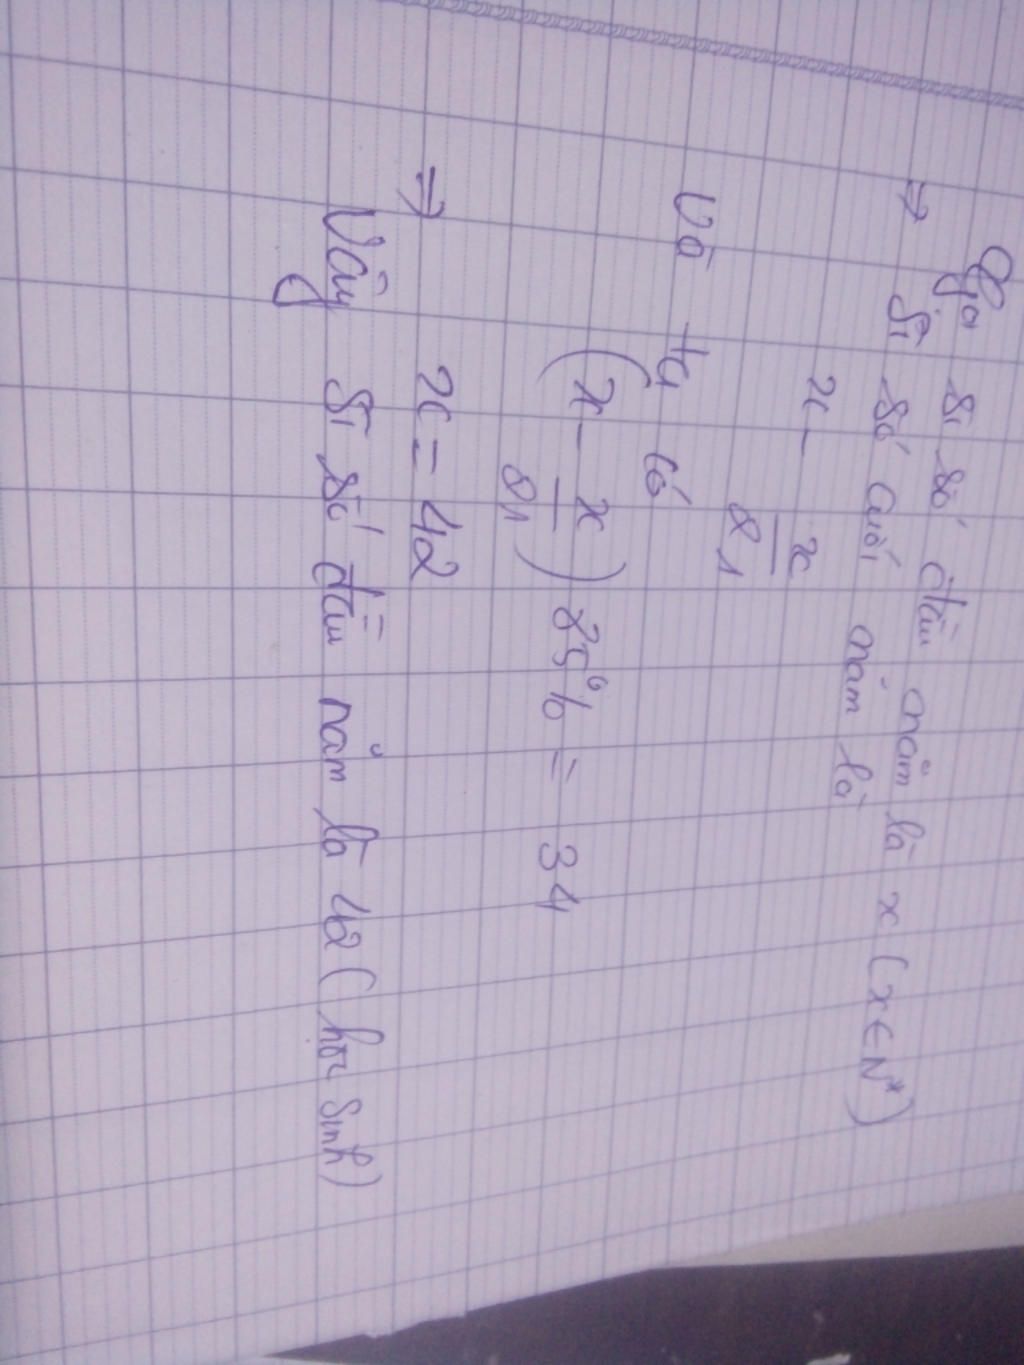 Gọi sĩ số đầu năm là x (x ∈ N*)
⇒ Sĩ số cuối năm là
x - x/21
Và ta có
(x - x/21) 85% = 34
⇒ x = 42
Vậy sĩ số đầu năm là 42 (học sinh)